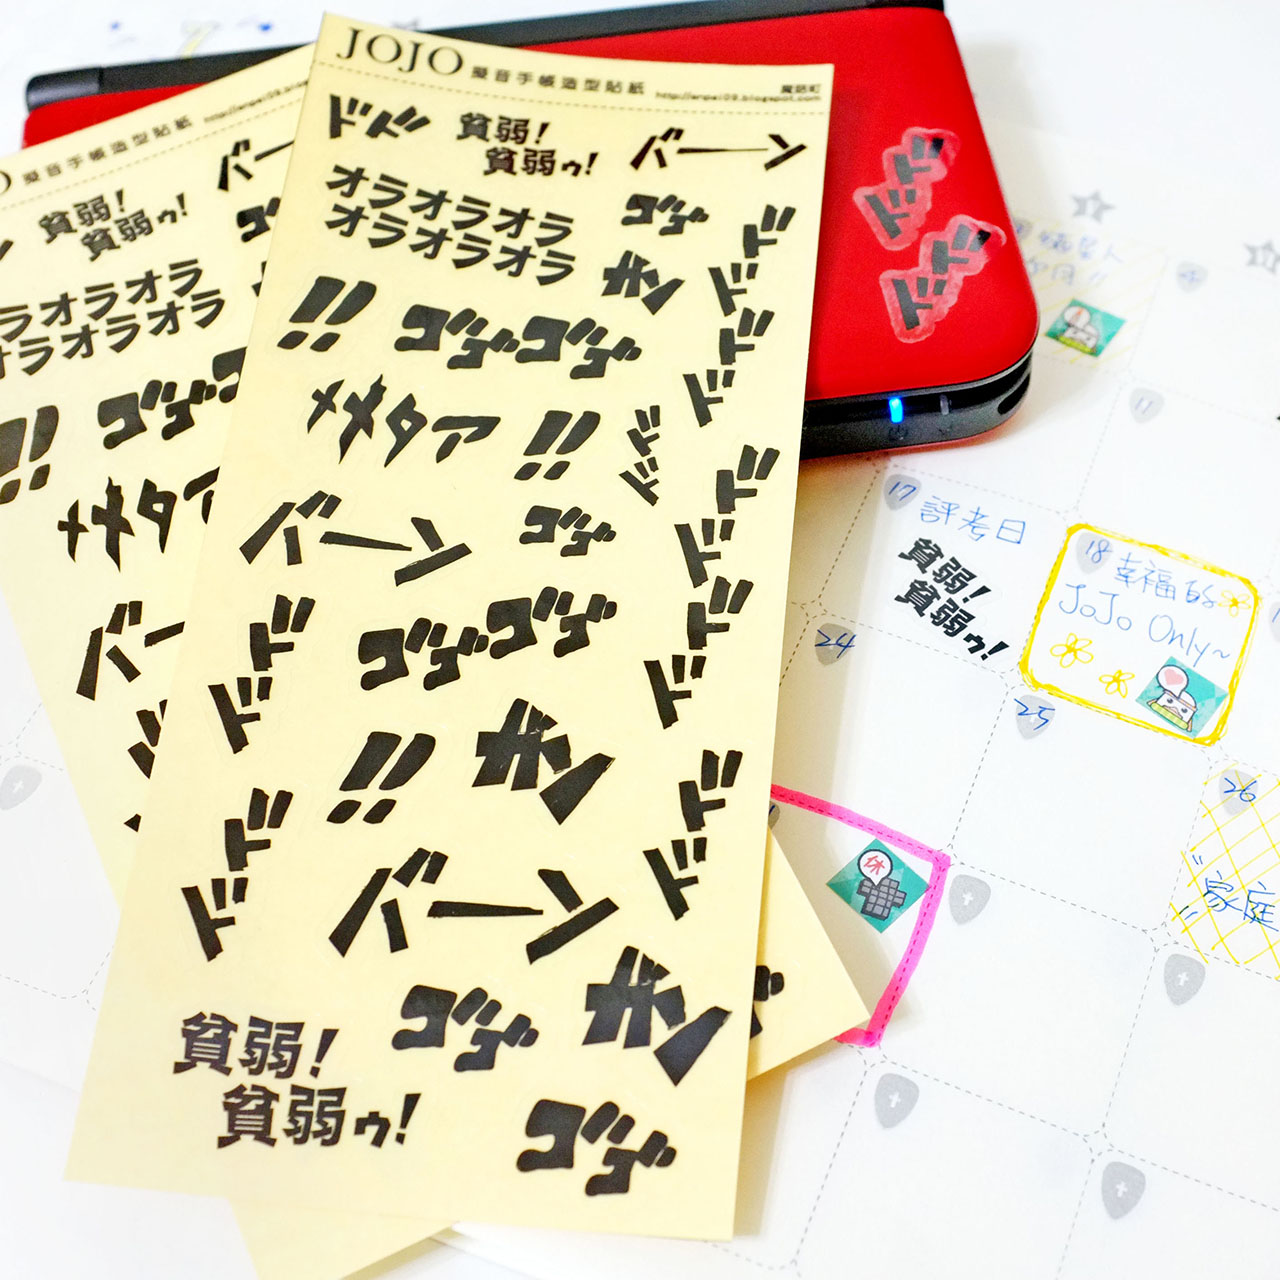 JOJO 擬音手帳造型貼紙 http://enpei09.blogspot.com 魔菇町
ドドド 貧弱! バーーン
貧弱ゥ!
オラオラオラ
オラオラオラ
ゴゴ
ドド
ギン
!!
ゴゴゴゴ
ドド
メメタア
!!
ドド
バーン
ゴゴ
ドド
ドド
ゴゴゴゴ
ドド
!!
ギン
ドド
ドド
バーン
ゴゴ
ギン
貧弱!
貧弱ゥ!
ゴゴ
擬音手帳造型貼紙
貧弱!
貧弱ゥ!
バー
オラオラ
オラオラオラ
!!
ゴゴ
メメタア
バー
ドド
ドド
11
17 評考日
貧弱!
貧弱ゥ!
18 幸福的
JoJo Only~
24
25
26
家庭
休